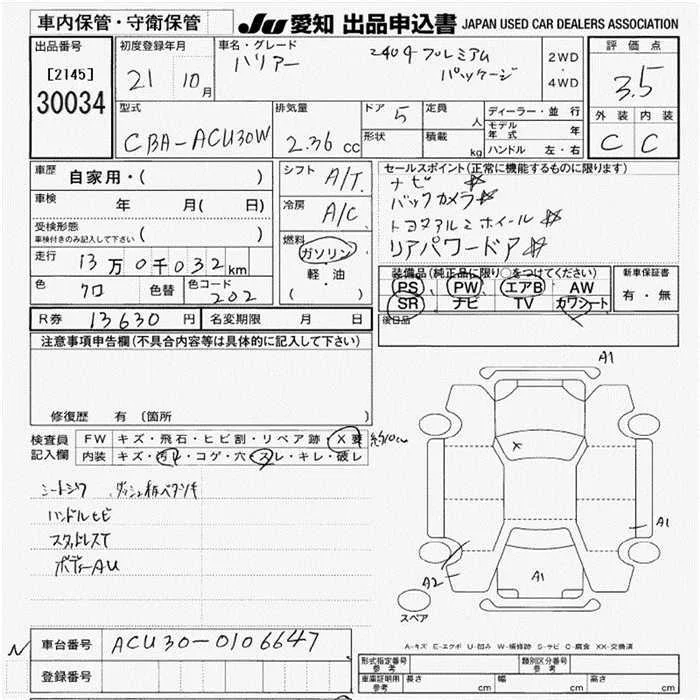 車内保管・守衛保管 JU 愛知 出品申込書 JAPAN USED CAR DEALERS ASSOCIATION
出品番号 [2145] 30034
初度登録年月 21 10月
車名・グレード ハリアー 240G プレミアム パッケージ 2WD ・ 4WD
評価点 3.5
外装 内装
C C
型式 CBA-ACU30W
排気量 2.36 cc
ドア 5 形状
定員 人 積載 kg
ディーラー・並行
モデル年式 年
ハンドル 左・右
車歴 自家用・( )
車検 年 月( 日)
受検形態 車検付きのみ記入して下さい ( )
走行 13万0千032km
色 クロ 色替 色コード 202
シフト A/T
冷房 A/C
燃料 ガソリン
軽・油
( )
セールスポイント(正常に機能するものに限ります)
ナビ ☆
バックカメラ ☆
トヨタアルミホイール ☆
リアパワードア ☆
装備品(純正品に限り○をつけてください)
PS PW エアB AW
SR ナビ TV カワシート
新車保証書
有・無
後日品
R券 13630 円 名変期限 月 日
注意事項申告欄(不具合内容等は具体的に記入して下さい)
修復歴 有(箇所 )
検査員記入欄 FW キズ・飛石・ヒビ割・リペア跡・X要 10cm
内装 キズ・汚レ・コゲ・穴・スレ・キレ・破レ
シートシワ
ハンドルヒビ
スタッドレスT
ボディーAU
A1
X
A1
A2
A1
スペア
A-キズ E-エクボ U-凹み W-補修跡 S-サビ C-腐食 XX-交換済
N 車台番号 ACU30-0106647
登録番号
形式指定番号 参考 類別区分番号 参考
車庫証明用 参考 長さ cm 幅 cm 高さ cm